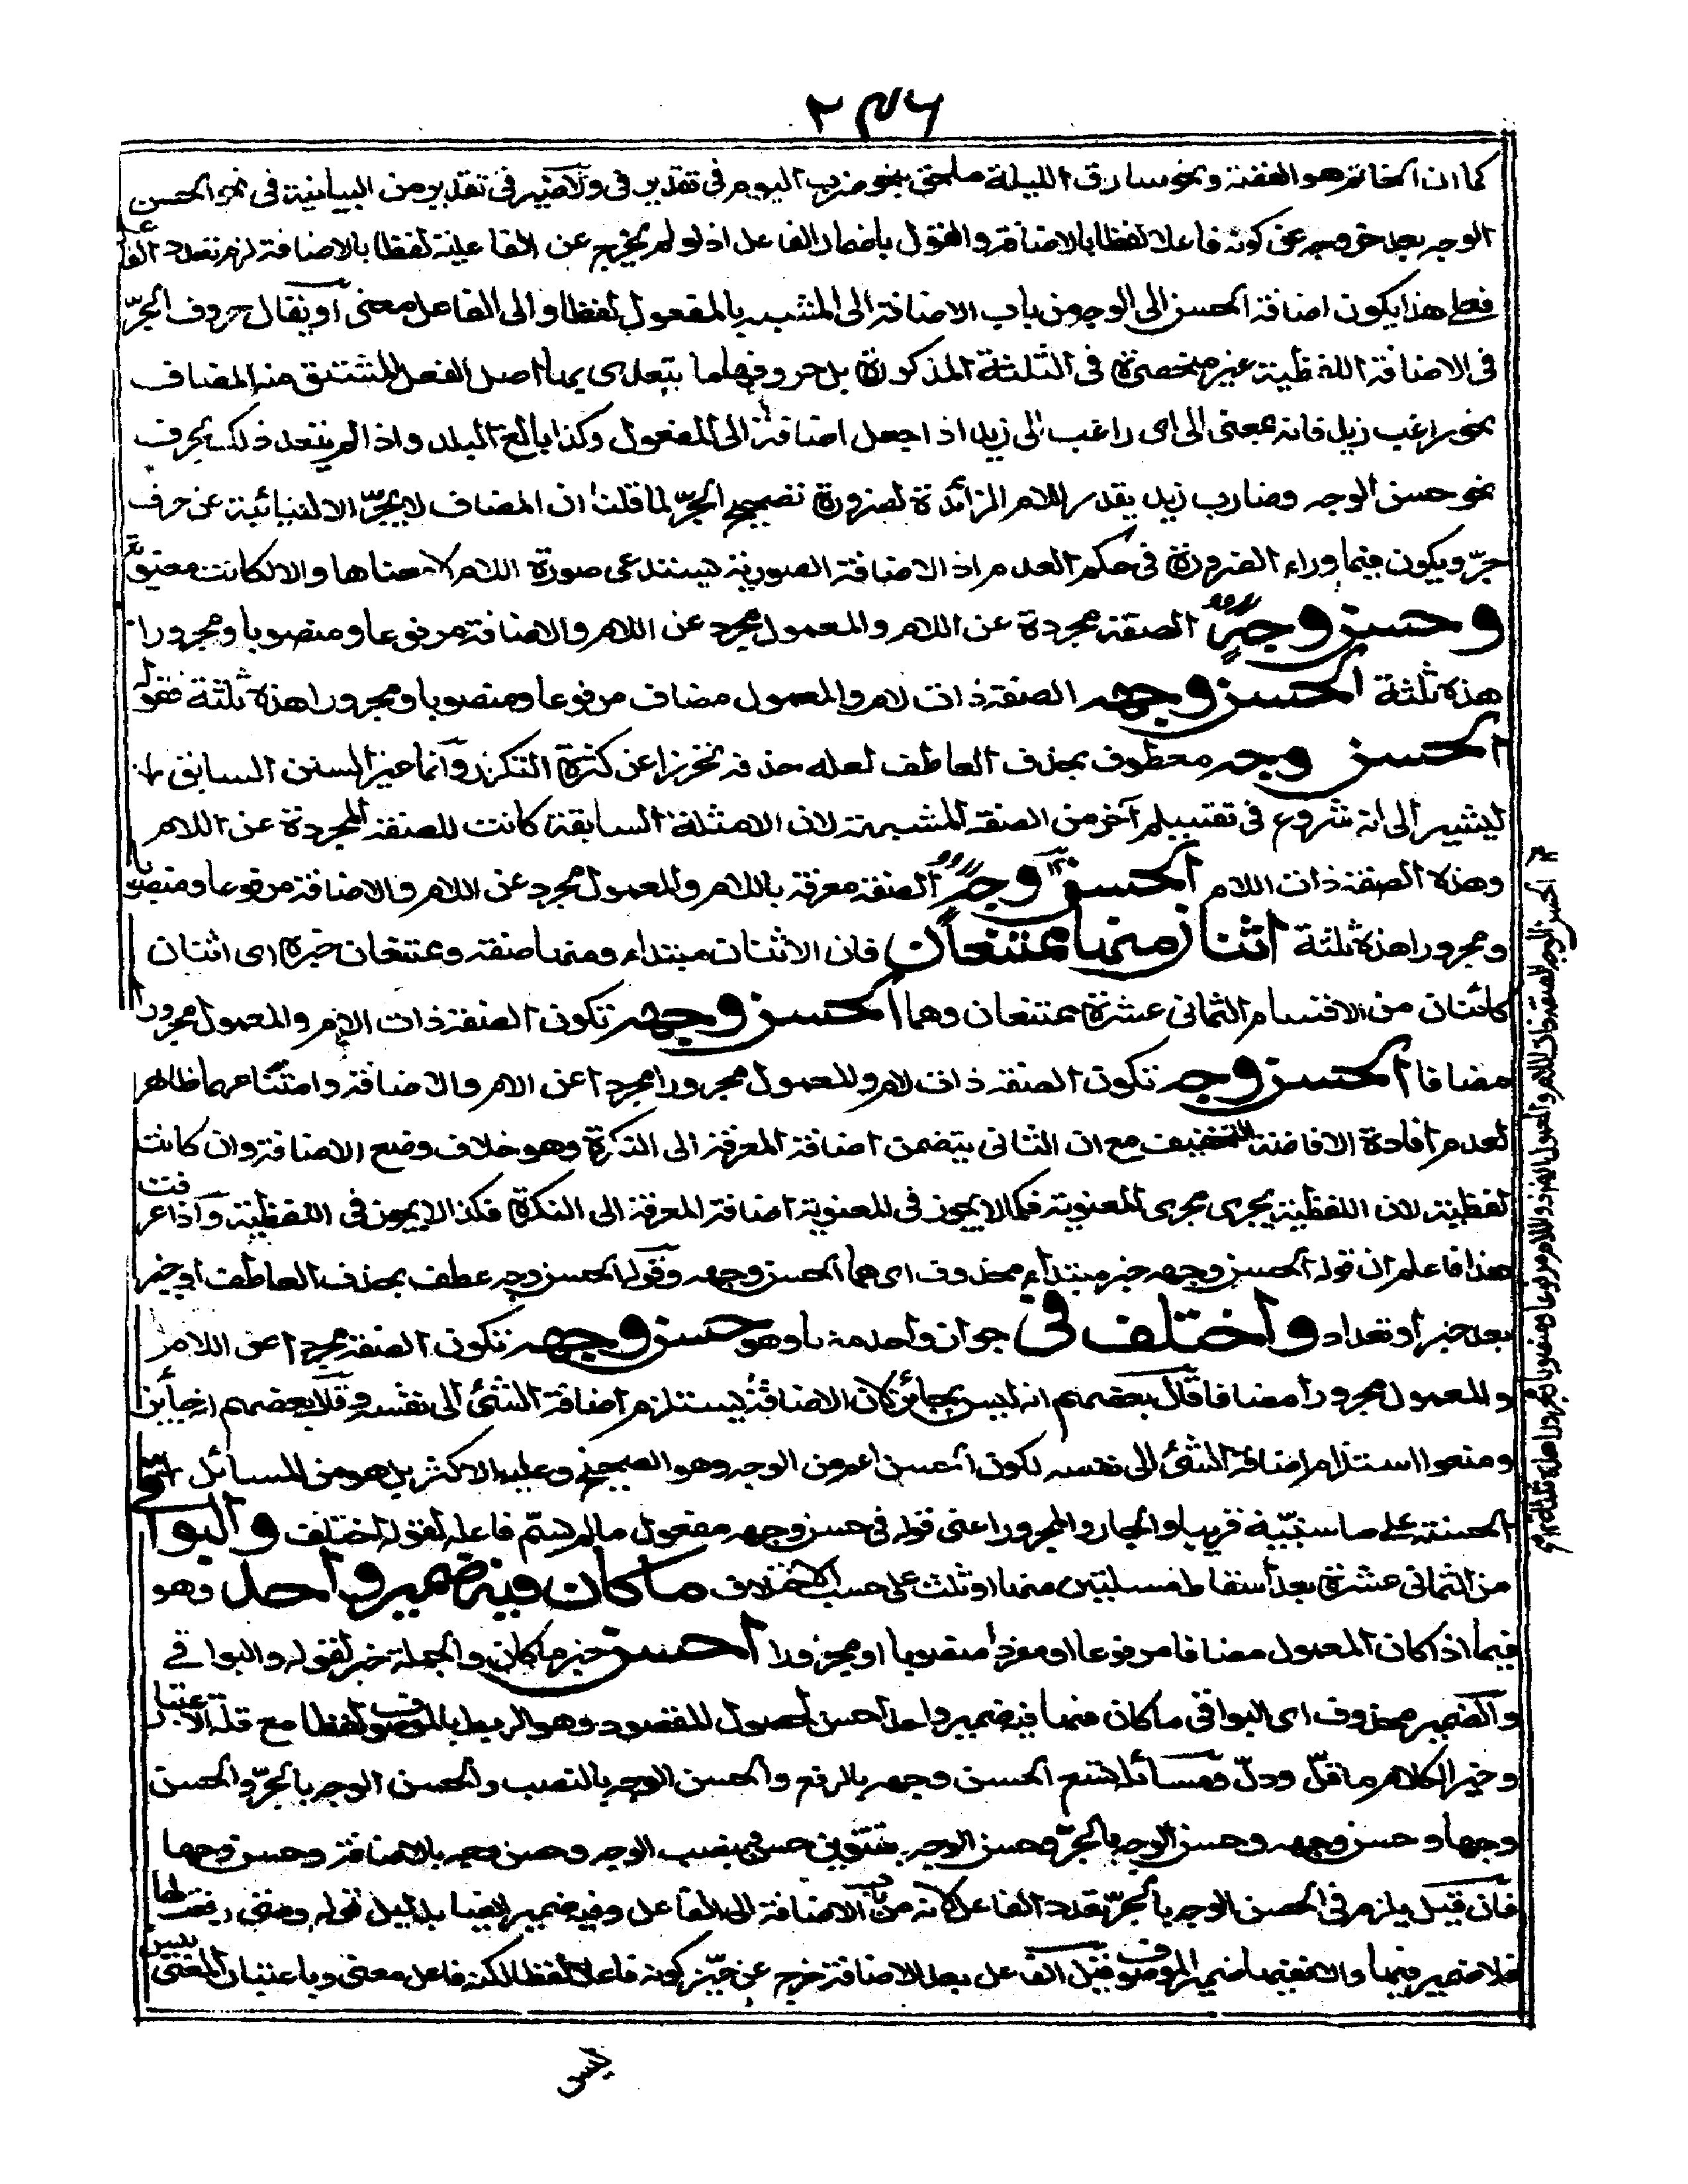 ٢٣٦
كما ان الخاتم هو الفضة ونحو سارق الليلة ملحق بنحو ضرب اليوم في تقدير في ولا ضير في تقدير من البيانية في نحو الحسن
الوجه بعد خروجه عن كونه فاعلا لفظا بالاضافة والقول باضمار الفاعل اذ لو لم يخرج عن الفاعلية لفظا بالاضافة لزم تعدد الفاعل
فعلى هذا يكون اضافة الحسن الى الوجه من باب الاضافة الى المشبه بالمفعول لفظا والى الفاعل معنى او يقال حروف الجرّ
في الاضافة اللفظية غير منحصرة في الثلثة المذكورة بل حروفها ما يتعدى بها اصل الفعل المشتق منه المضاف
نحو راغب زيد فانه بمعنى الى اى راغب الى زيد اذا جعل اضافته الى المفعول وكذا بالغ البلد واذا لم يتعد ذلك بحرف
نحو حسن الوجه وضارب زيد يقدر اللام الزائدة لضرورة تصحيح الجرّ لما قلنا ان المضاف لا يجرّ الا لنيابته عن حرف
جرّ ويكون فيما وراء الضرورة في حكم العدم اذ الاضافة الصورية تستدعى صورة اللام لا معناها والا لكانت معنوية
وحسن وجه الصفة مجردة عن اللام والمعمول مجرد عن اللام والاضافة مرفوعا ومنصوبا ومجرورا
هذه ثلثة الحسن وجهه الصفة ذات لام والمعمول مضاف مرفوعا ومنصوبا ومجرورا هذه ثلثة فقوله
الحسن وجهه معطوف بحذف العاطف لعله حذفه تحرزا عن كثرة التكرر وانما غير السنن السابق
ليشير الى انه شروع في تقسيم آخر من الصفة المشبهة لان الامثلة السابقة كانت للصفة المجردة عن اللام
وهذه الصفة ذات اللام الحسن وجه الصفة معرفة باللام والمعمول مجرد عن اللام والاضافة مرفوعا ومنصوبا
ومجرورا هذه ثلثة اثنان منها ممتنعان فان الاثنان مبتداء ومنها صفته وممتنعان خبره اى اثنان
كائنان من الاقسام الثماني عشرة ممتنعان وهما الحسن وجهه تكون الصفة ذات اللام والمعمول مجرورا
مضافا الحسن وجه تكون الصفة ذات لام والمعمول مجرورا مجردا عن اللام والاضافة وامتناعهما ظاهر
لعدم افادة الاضافة التخفيف مع ان الثاني يتضمن اضافة المعرفة الى النكرة وهو خلاف وضع الاضافة وان كانت
لفظية لان اللفظية يجرى مجرى المعنوية فكما لا يجوز في المعنوية اضافة المعرفة الى النكرة فكذا لا يجوز في اللفظية واذا عرفت
هذا فاعلم ان قوله الحسن وجهه خبر مبتداء محذوف اى هما الحسن وجهه وقوله الحسن وجه عطف بحذف العاطف او خبر
بعد خبر او تعداد واختلف في جواز واحد منها وهو حسن وجهه تكون الصفة مجردا عن اللام
والمعمول مجرورا مضافا قال بعضهم انه ليس بجائز لان الاضافة يستلزم اضافة الشئ الى نفسه وقال بعضهم انه جائز
ومنعوا استلزام اضافة الشئ الى نفسه لكون الحسن اعم من الوجه وهو الصحيح وعليه الاكثر بل هو من المسائل
الحسنة على ما سنبيّنه قريبا والجار والمجرور اعنى قوله في حسن وجهه مفعول ما لم يسمّ فاعله لقوله اختلف والبواقي
من الثماني عشرة بعد اسقاط مسئلتين منها او ثلث على حسب الاختلاف ما كان فيه ضمير واحد وهو
فيما اذا كان المعمول مضافا مرفوعا او مفردا منصوبا او مجرورا احسن خبر ما كان والجملة خبر لقوله والبواقي
والضمير محذوف اى البواقي ما كان منها فيه ضمير واحد احسن لحصول المقصود وهو الربط بالموصوف لفظا مع قلة الاعتبار
وخير الكلام ما قلّ ودلّ ومسائله تسع الحسن وجهه بالرفع والحسن الوجه بالنصب والحسن الوجه بالجرّ والحسن
وجها وحسن وجهه وحسن الوجه بالجرّ وحسن الوجه بتنوين حسن بنصب الوجه وحسن وجه بالاضافة وحسن وجها
فان قيل يلزم في الحسن الوجه بالجرّ تعدد الفاعل لانه من باب الاضافة الى الفاعل وفيه ضمير ايضا بدليل قوله ومتى رفعت بها
فلا ضمير فيها والا ففيها ضمير الموصوف قيل الفاعل بعد الاضافة خرج عن حيّز كونه فاعلا لفظا لكنه فاعل معنى وباعتبار المعنى ليس
ليس
الحسن الوجه الصفة ذات اللام والمعمول ايضا ذو اللام مرفوعا ومنصوبا ومجرورا هذه ثلثة